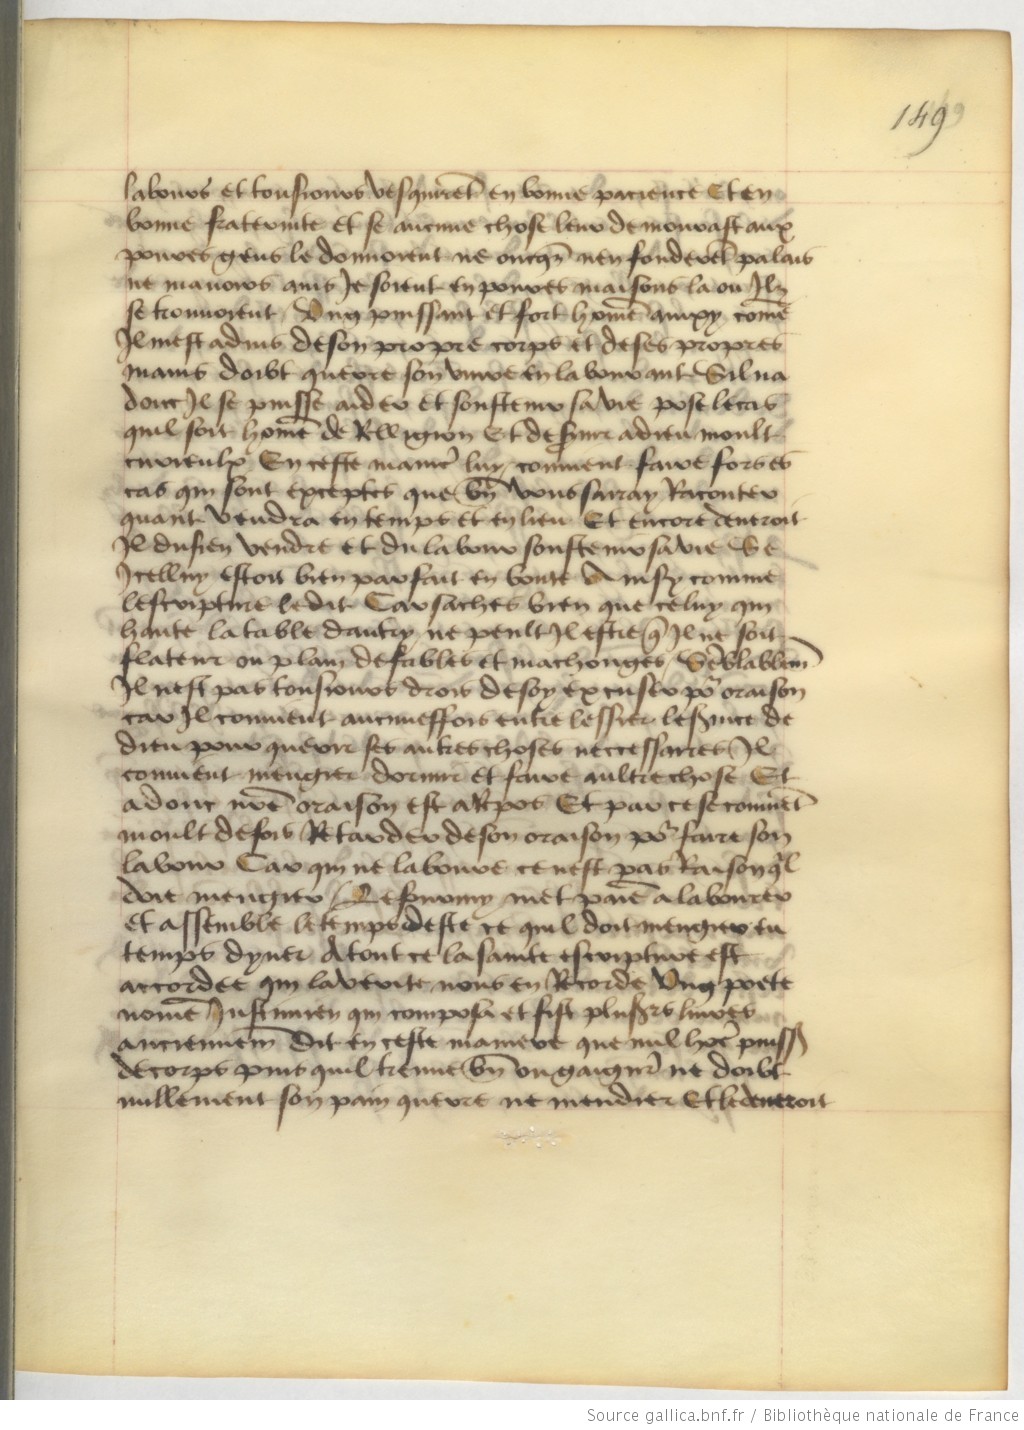 149
labours et tousiours vesquiret en bonne pacience Et en
bonne fraternite Et se aucune chose leur demourast aux
poures gens le donnoient ne oncqs nen fonderet palais
ne manoirs ains se soient en poures maisons la ou Ilz
se trouuoient Ung puissant et fort home ainxy come
Il mest aduis de son propre corps et de ses propres
mains doibt querre son viure en labourant Sil na
dont Il se puisse aider et soustenir sa vie pose le cas
quil soit home de Religion Et de seruir a dieu moult
curieulx En ceste manie luy conuient faire fors es
cas qui sont exceptes que bn vous saray Raconter
quant vendra en temps et en lieu Et encore deueroit
Il du sien vendre et du labour soustenir sa vie Se
Icelluy estoit bien parfait en bonte Ainsy comme
lescripture le dit Car saches bien que celuy qui
hante la table dautry ne peult Il estre q Il ne soit
flateur ou plain de fables et machonges Seblablem
Il nest pas tousiours drois de soy excuser po oraison
car Il conuient aucuneffois entre lessier le seruice de
dieu pour querir ses autres choses neccessaires Il
conuient mengier dormir et faire aultre chose Et
adonc nre oraison est a Repos Et par ce se conuiet
moult de fois Retarder de son oraison por faire son
labour Car qui ne laboure ce nest pas Raison ql
doie mengier Le fourmy met paie a labourer
et assemble le temps deste ce quil doit mengier en
temps dyuer A tout ce la sainte escripture est
accordee qui la verite nous en Recorde Ung poete
nome Justinien qui composa et fist plusrs liures
anciennem dit en ceste maniere que nul hoe puiss
de corps puis quil treuue bn ou gaignr ne doibt
nullement son pain querre ne mendier Et le deueroit
Source gallica.bnf.fr / Bibliothèque nationale de France